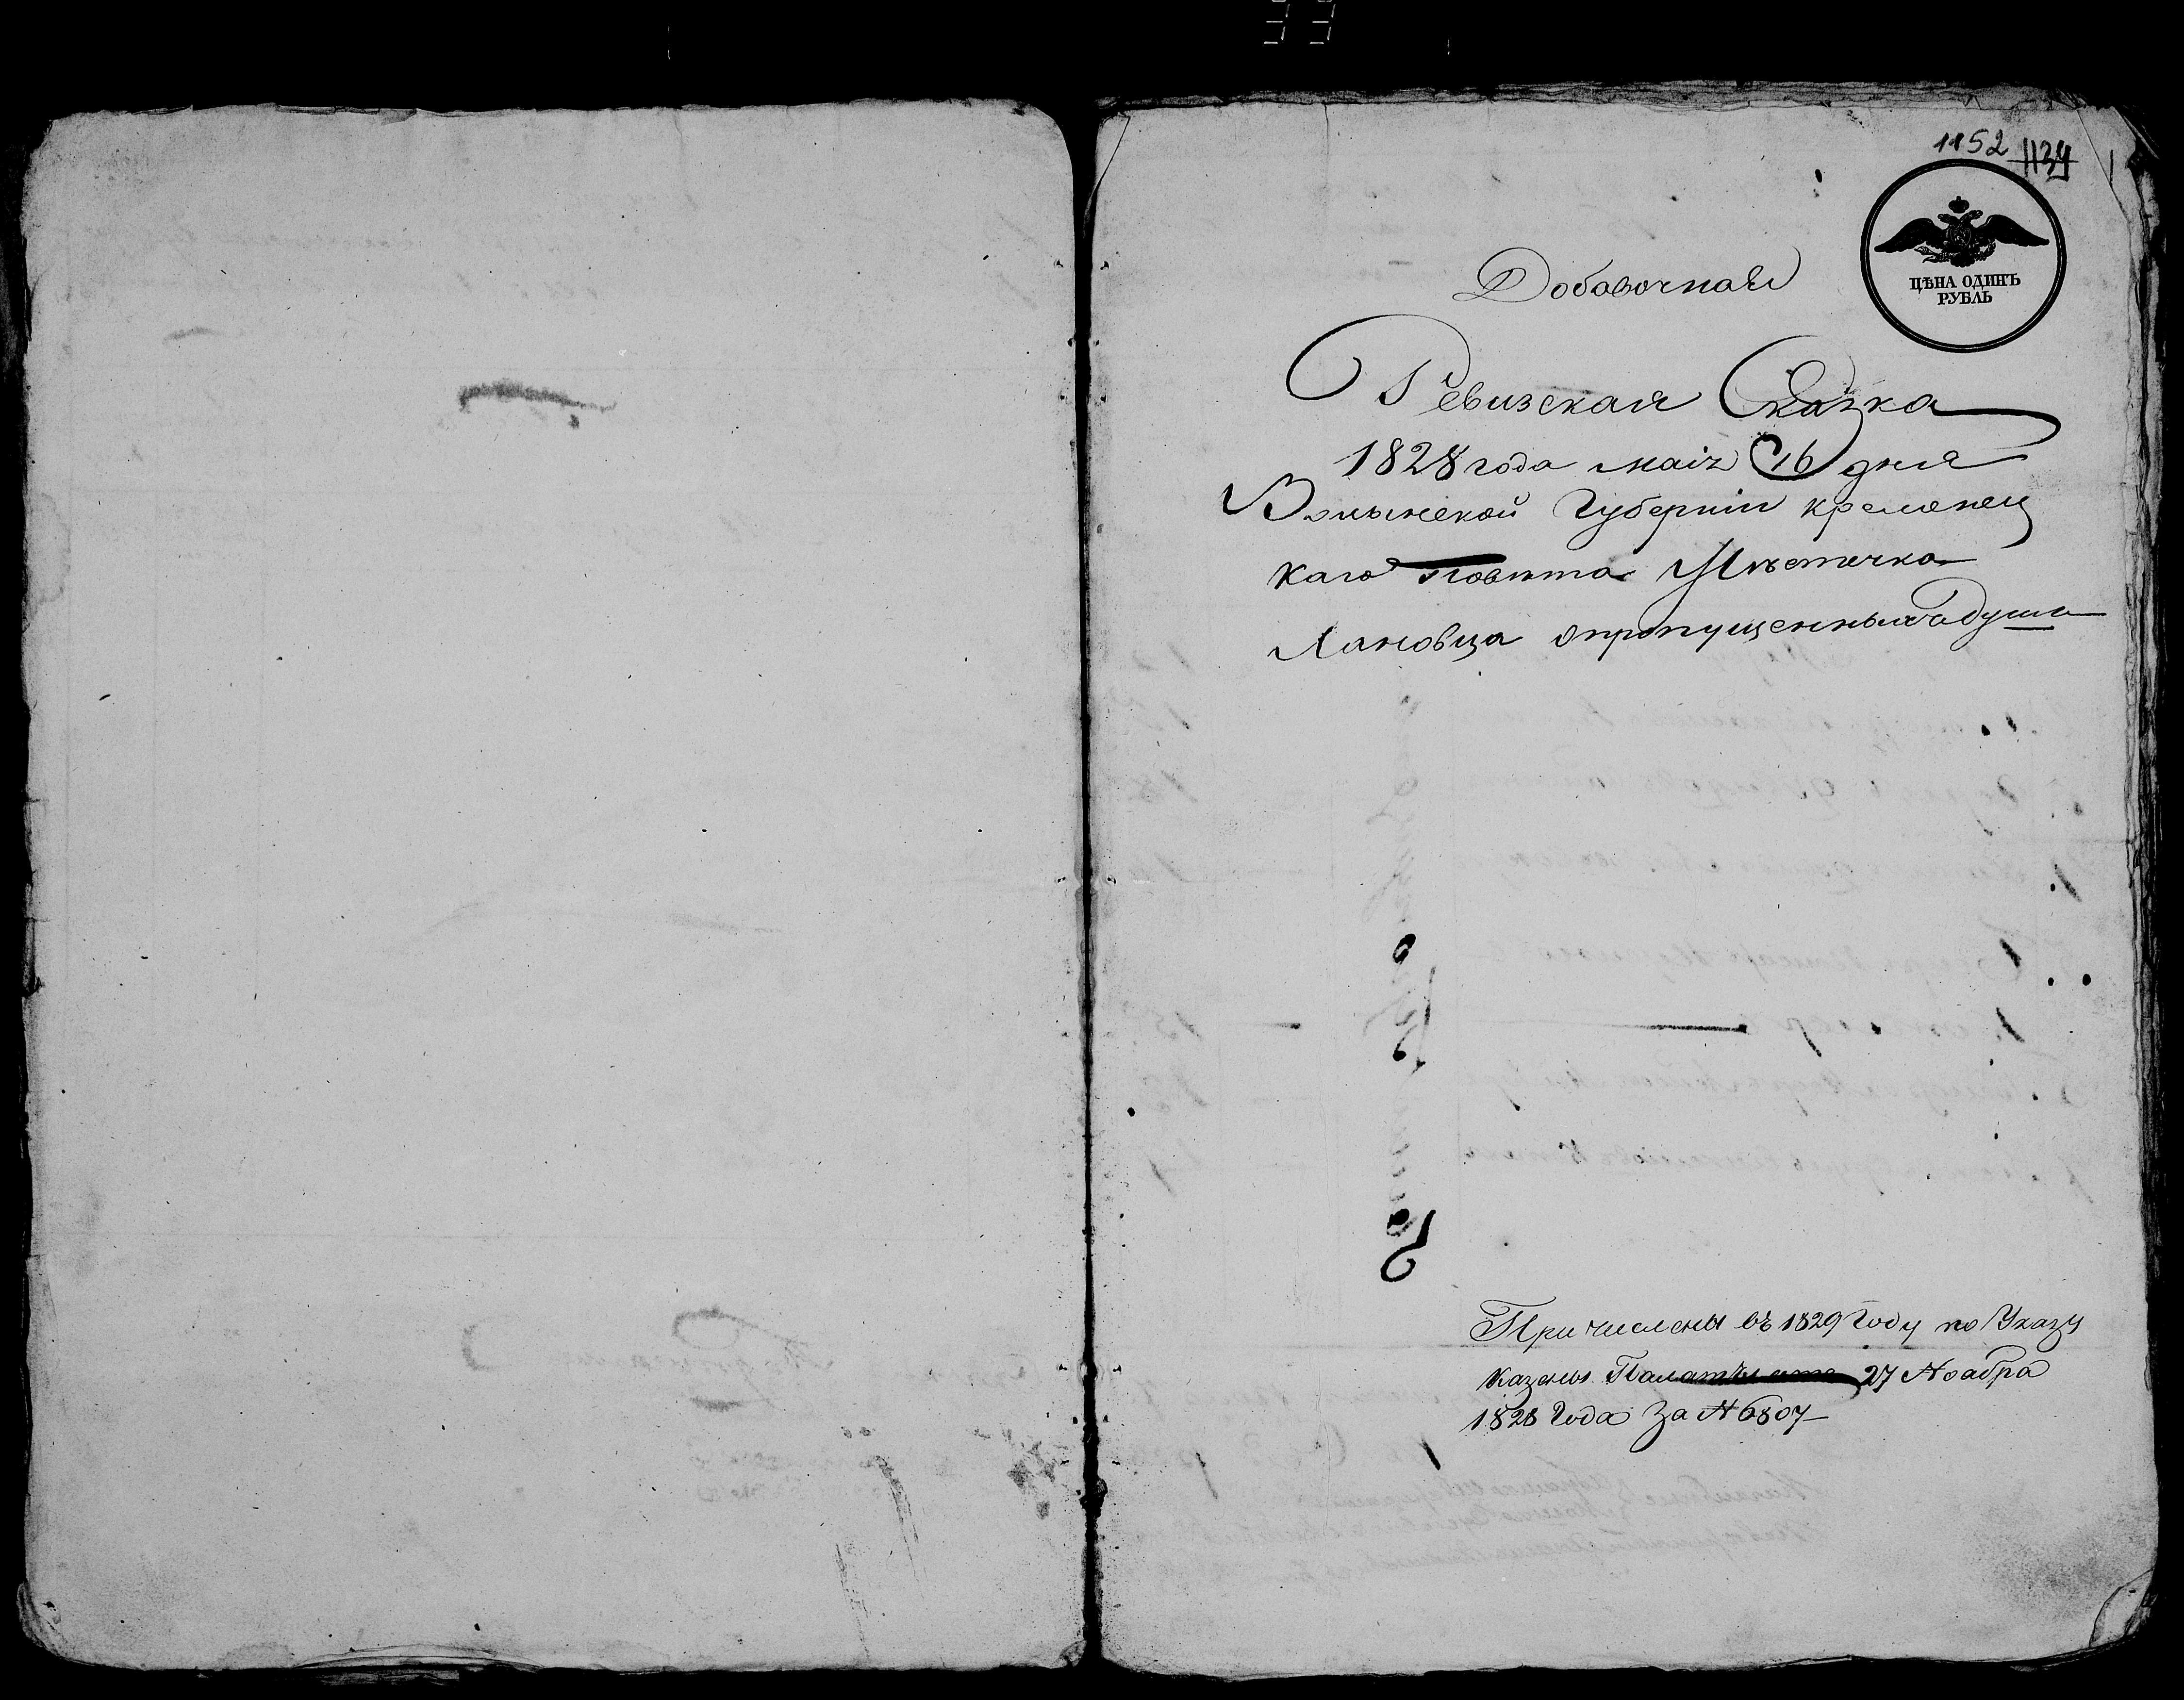 33
1152 1139
ЦѢНА ОДИНЪ
РУБЛЬ
Добавочная
Ревизская Сказка
1828 года маiя 16 дня
Волынской Губернiи кременец
каго Повѣта Мѣстечка
Лановца опропущенныхъ душа
Причислены въ 1829 Году по Указу
Казеныя Палаты 27 Ноабра
1828 Года За № 6807